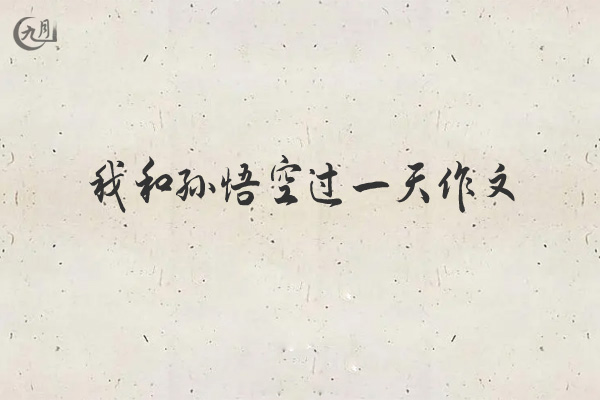 九月
我和孙悟空过一天作文